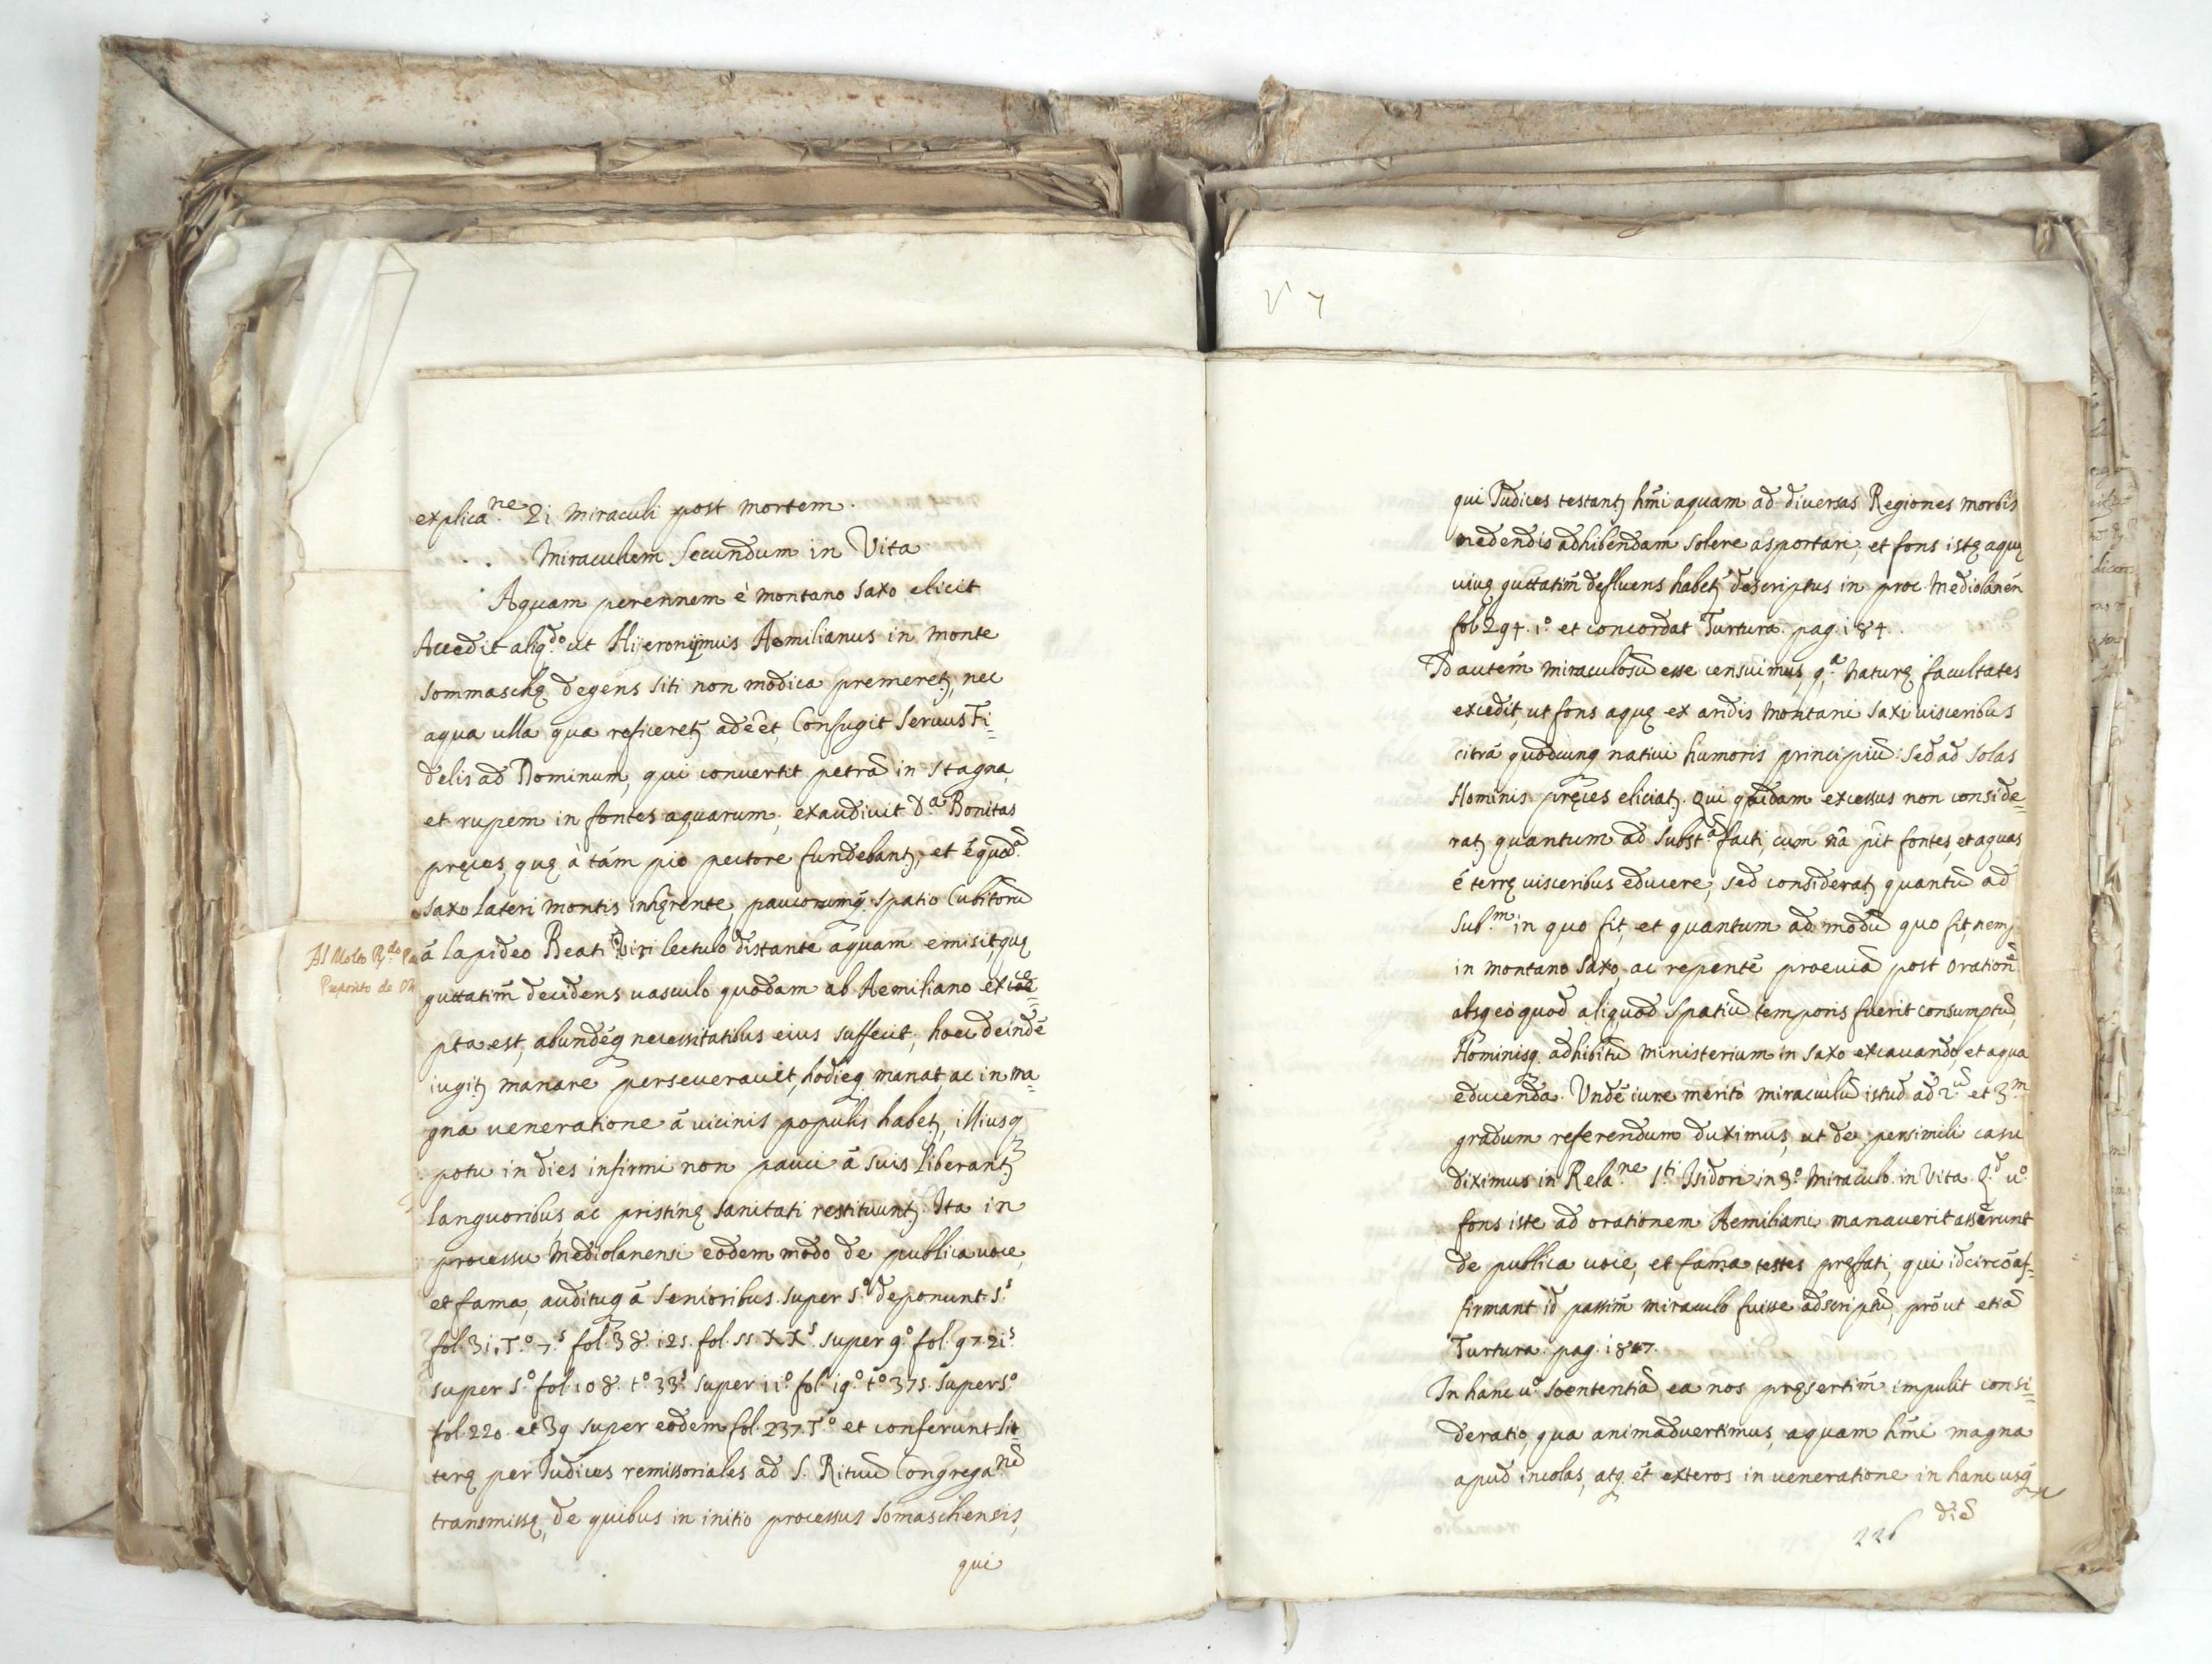 explica.ne 2i miraculi post mortem.
Miraculum secundum in Vita
Aquam perennem è montano saxo elicit
Accedit aliq.do ut Hijeronymus Aemilianus in monte
sommaschę degens siti non modica premeretʒ, nec
aqua ulla qua reficeretʒ adeēt, Confugit Seruus Fi=
delis ad Dominum, qui convertit petrā in stagna,
et rupem in fontes aquarum, exaudiuit D.a Bonitas
pręces, quę à tám pio pectore fundebantʒ, et é quod.
saxo lateri montis inhęrente, paucorumq. spatio Cubitorū
á lapideo Beati Viri lectulo distante aquam emisit, quę
guttatim̄ decidens uasculo quodam ab Aemiliano exce=
pta est, abundéq necessitatibus eius suffecit, hoec deindé
iugitʒ manare perseverauit, hodieq manat, ac in ma=
gna ueneratione á uicinis populis habetʒ, illiusq
potu in dies infirmi non pauci á suis liberantʒ
languoribus ac pristinę sanitati restituuntʒ. Ita in
processu Mediolanensi eodem modo de publica uoce,
et fama, audituq á Senioribus super 5.o deponunt 5.s
fol. 31. T.o 7.s fol. 38. 12s. fol. 55. XX.s super 9.o fol. 97. 21.s
super 5.o fol. 108. t.o 33.s super 11.o fol. 19.o t.o 37s. super 5.o
fol. 220. et 39 super eodem fol. 237. T.o et conferunt lit=
terę per Iudices remissoriales ad S. Rituū Congrega.nē
transmissę, de quibus in initio processus Somaschensis,
qui
Al Molto R.do Pa
Preposito de
qui Iudices testantʒ hm̄i aquam ad diuersas Regiones morbis
medendis adhibendam solere asportari, et fons istę aquę
uiuę guttatim̄ defluens habetʒ descriptus in proc. Mediolanēn
fol. 294. 1.o et concordat Turtura. pag. 184.
Id autem miraculosū esse censuimus, q.a naturę facultates
excedit, ut fons aquę ex aridis montani saxi uisceribus
citrà quodcunq natiui humoris principiū sed ad solas
Hominis pręces eliciatʒ. Qui quidam excessus non conside=
ratʒ quantum ad subst.ā facti, cum nā pi̇t fontes, et aquas
é terrę uisceribus educere, sed consideratʒ quantū ad
Sub.m in quo fit, et quantum ad modū quo fit, nemp.
in montano saxo, ac repenté proeuia post orationē
absq eo quod aliquod spatiū temporis fuerit consumptū,
Hominisq. adhibitū ministerium in saxo excauando, et aqua
educenda. Vndé iure merito miraculū istud ad 2.ū et 3.m
gradum referendum duximus, ut de persimili casu
diximus in Rela.ne S.ti Isidori in 3.o miraculo in Vita. Q.d u.o
fons iste ad orationem Aemiliani manauerit asserunt
de publica uoce, et fama testes pręfati, qui idcircò af=
firmant id passim̄ miraculo fuisse adscriptū, próut etiā
Turtura. pag. 187.
In hanc u.o soententiā ea nos pręsertim̄ impulit consi=
deratio, qua animaduertimus, aquam hm̄i magna
apud incolas, atq. ét exteros in ueneratione in hanc usq
diē
226